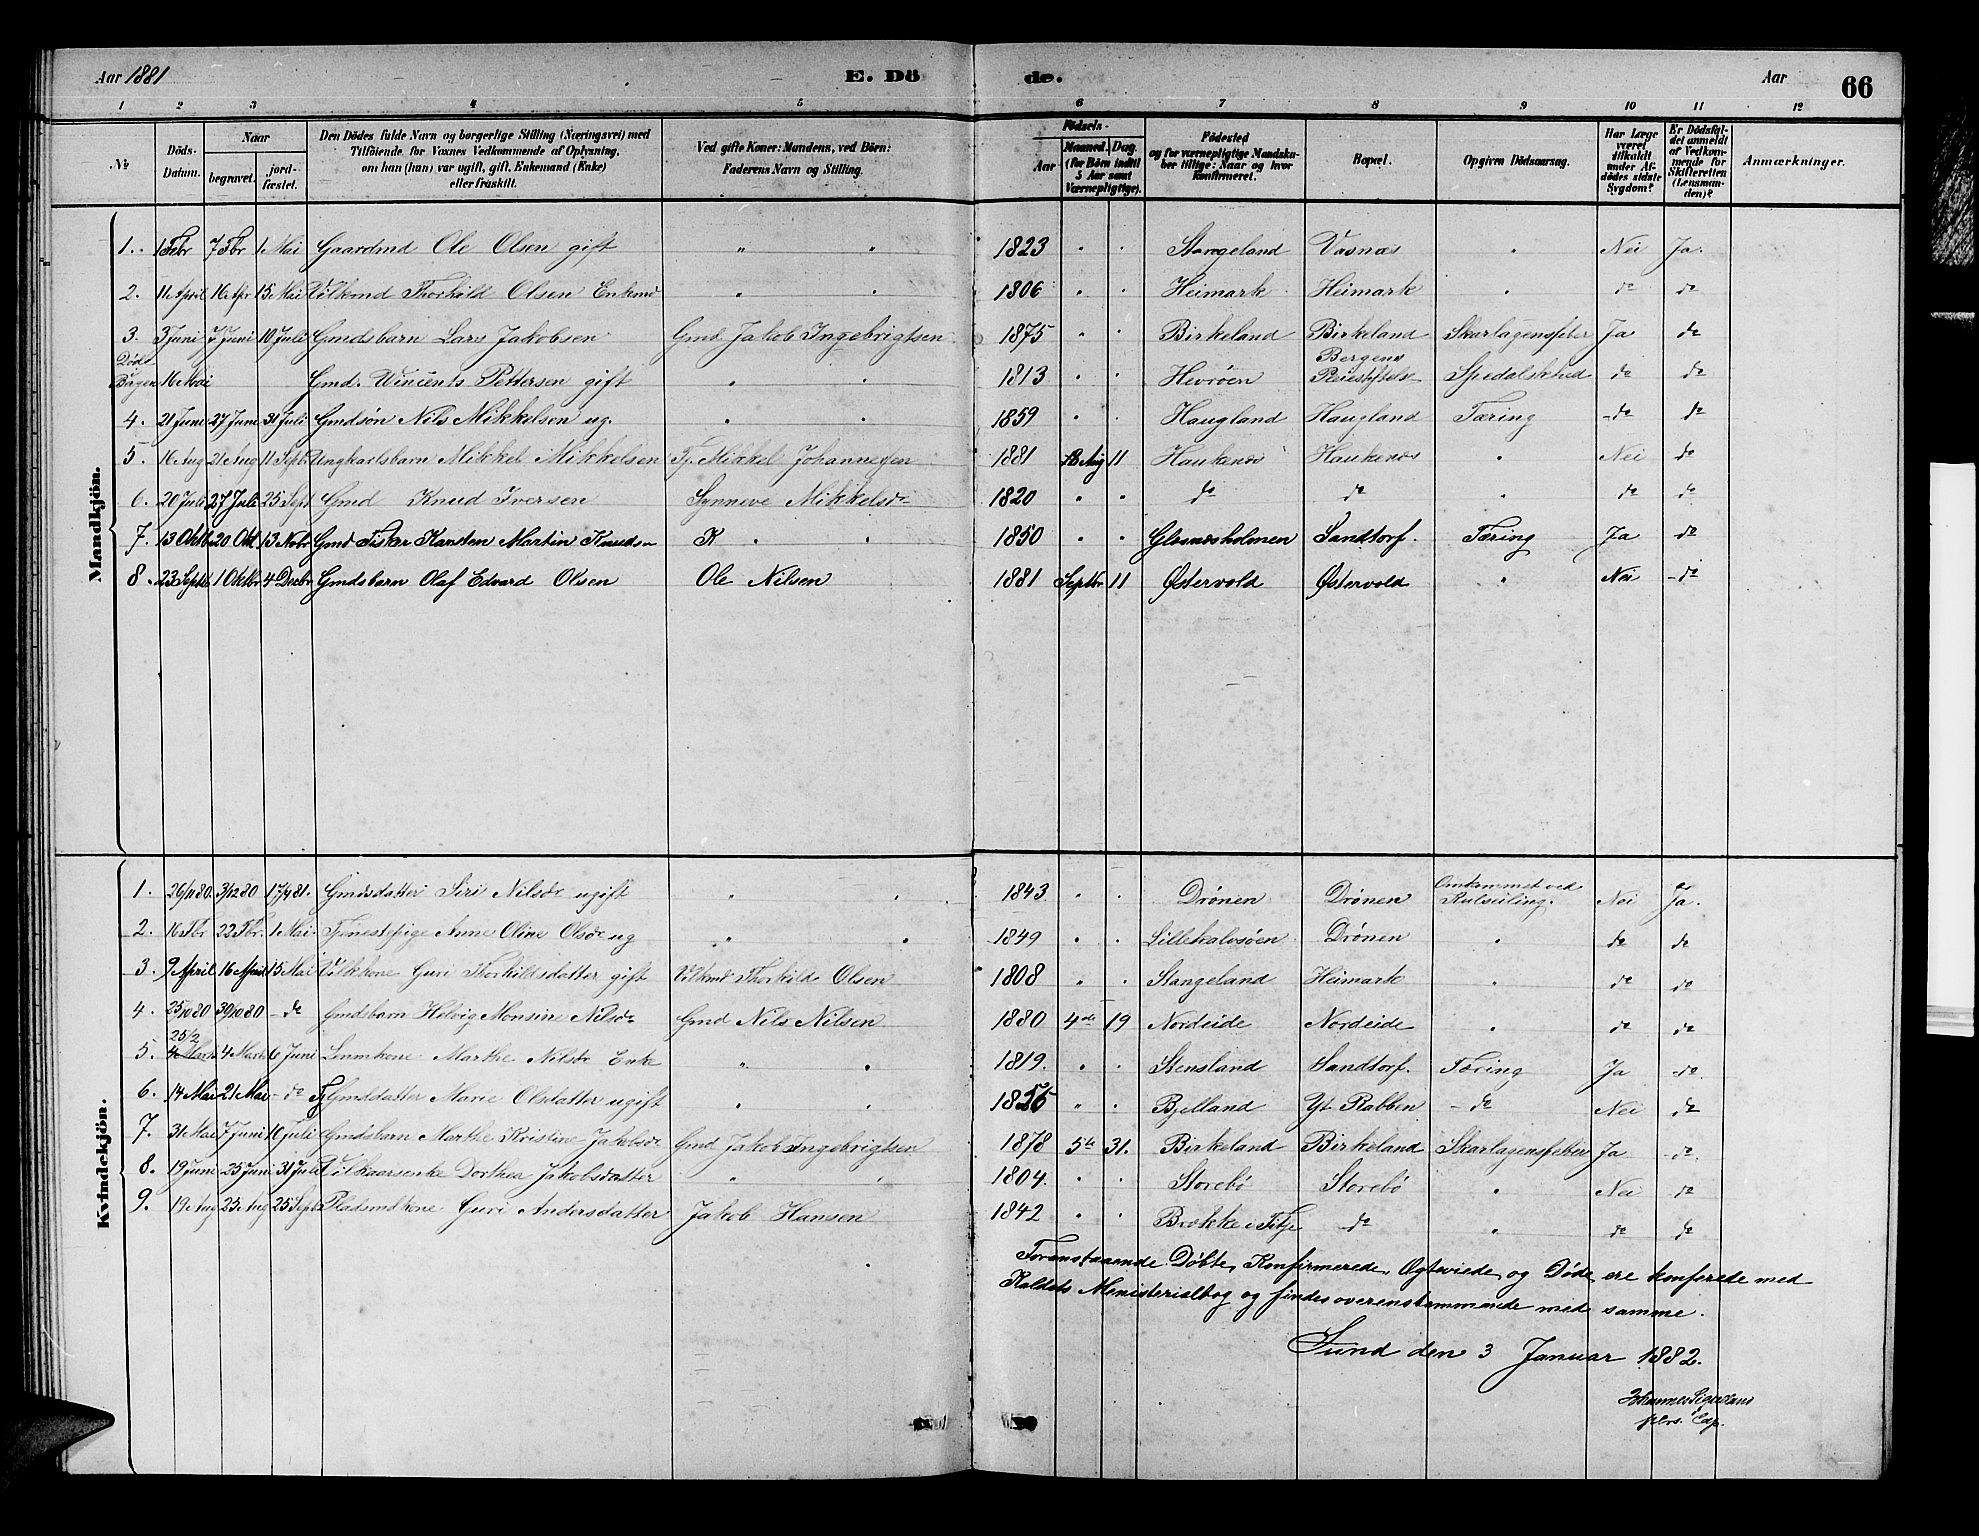 Aar 1881 E. Dö de. Aar 66
1 2 3 4 5 6 7 8 9 10 11 12
№ Döds-Datum. Naar begravet. jord-fæstet. Den Dödes fulde Navn og borgerlige Stilling (Næringsvei) med Tilföiende, for Voxnes Vedkommende af Oplysning, om han (hun) var ugift, gift, Enkemand (Enke) eller fraskilt. Ved gifte Koner: Mandens, ved Börn: Faderens Navn og Stilling. Födsels- Aar Maaned. Dag. (for Börn indtil 5 Aar samt Værnepligtige). Födested og for værnepligtige Mandskaber tillige: Naar og hvor konfirmeret. Bopæl. Opgiven Dödsaarsag. Har Læge været tilkaldt under Afdödes sidste Sygdom? Er Dödsfaldet anmeldt af Vedkommende for Skifteretten (Lensmanden)? Anmærkninger.
Mandkjön.
1. 1 Febr 7 Fbr 1 Mai Gaardmd Ole Olsen gift " " 1823 " " Stangeland Vasnæs " Nei Ja.
2. 11 April 16 Apr 15 Mai Vilkmd Thorkild Olsen Enkmd " " 1806 " " Heimark Heimark " do do
3. 3 Juni 7 Juni 10 Juli Gmdsbarn Lars Jakobsen Gmd Jakob Ingebrigtsen 1875 " " Birkeland Birkeland Skarlagensfeber Ja do
Døde i Bergen 16 Mai Gmd. Wincents Pettersen gift " " 1813 " " Hevröen Bergens Pleiestiftelse Spedalskhed do do
4. 21 Juni 27 Juni 31 Juli Gmdsön Nils Mikkelsen ug. " " 1859 " " Haugland Haugland Tæring do do
5. 16 Aug 21 Aug 11 Septb Ungkarlsbarn Mikkel Mikkelsen Fj. Mikkel Johannesen 1881 Aug 11 Haukenæs Haukenæs " Nei do
6. 20 Juli 27 Juli 25 Sept Gmd Knud Iversen Synneve Mikkelsdr 1820 " " do do " do do
7. 13 Oktb 20 Okt 13 Nobr Gmd Fisker Karsten Martin Knuds- K " " 1850 " " Glesnæsholmen Sandtorf. Tæring Ja do
8. 23 Septb 1 Oktbr 4 Decbr Gmdsbarn Olaf Edvard Olsen Ole Nilsen 1881 Septbr 11 Østervold Østervold " Nei do
Kvindekjön.
1. 26/11 80. 3/12 80 17/4 81. Gmdsdatter Siri Nilsdr ugift " " 1843 " " Drönen Drönen Omkommet ved Kulseiling. Nei Ja.
2. 16 Fbr 22 Fbr. 1 Mai Tjenestepige Anne Oline Olsdr ug " " 1849 " " Lillekalvsöen Drönen " do do
3. 9 April 16 April 15 Mai Vilkkone Guri Thorkildsdatter gift Vilkmd Thorkild Olsen 1808 " " Stangeland Heimark " do do
4. 25/10 80 30/10 80 do Gmdsbarn Helvig Monsine Nilsdr Gmd Nils Nilsen 1880 4de 19 Nordeide Nordeide " do do
5. 25/2 4 Marts 4 Marts 6 Juni Lemkone Marthe Nilsdr Enke " " 1819. " " Stensland Sandtorf. Tæring Ja do
6. 14 Mai 21 Mai do Fj Gmdsdatter Marie Olsdatter ugift " " 1856 " " Bjelland Yt. Rabben do Nei do
7. 31 Mai 7 Juni 10 Juli Gmdsbarn Marthe Kristine Jakobsdr Gmd Jakob Ingebrigtsen 1878 5te 31. Birkeland Birkeland Skarlagensfeber Ja do.
8. 19 Juni 25 Juni 31 Juli Vilkaarsenke Dorthea Jakobsdatter " " 1804. " " Storebö Storebö " Nei do
9. 19 Aug 25 Aug 25 Septb Pladsmdkone Guri Andersdatter Jakob Hansen 1842 " " Brokke i Fitje do " do do
Foranstaaende Döbte, Konfirmerede, Ægteviede og Døde, ere konferede med
Kaldets Menisterialbog og findes overenstemmende med samme.
Sund den 3 Januar 1882.
Johannes
pers. Cap.